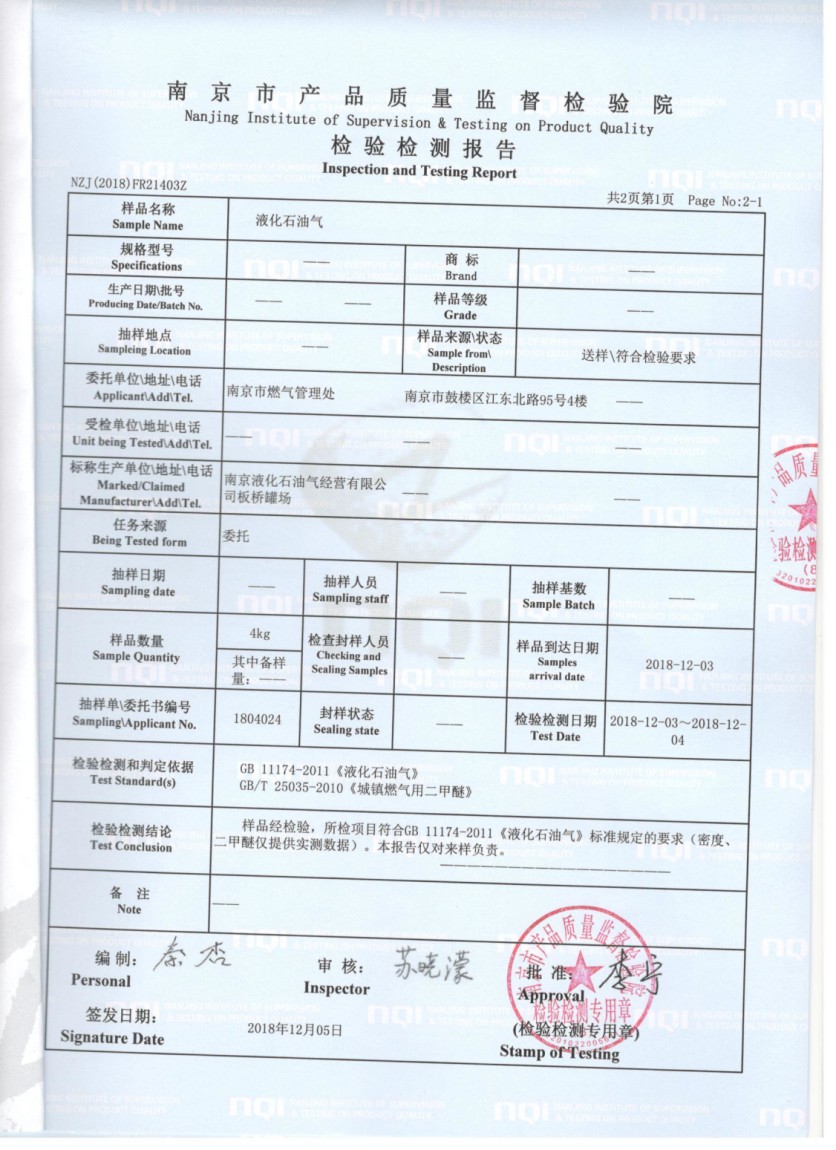 南京市产品质量监督检验院
Nanjing Institute of Supervision & Testing on Product Quality
检验检测报告
Inspection and Testing Report
NZJ(2018)FR21403Z
共2页第1页 Page No:2-1
样品名称
Sample Name
液化石油气
规格型号
Specifications
——
商 标
Brand
——
生产日期\批号
Producing Date/Batch No.
—— ——
样品等级
Grade
——
抽样地点
Sampleing Location
——
样品来源\状态
Sample from\
Description
送样\符合检验要求
委托单位\地址\电话
Applicant\Add\Tel.
南京市燃气管理处 南京市鼓楼区江东北路95号4楼 ——
受检单位\地址\电话
Unit being Tested\Add\Tel.
—— —— ——
标称生产单位\地址\电话
Marked/Claimed
Manufacturer\Add\Tel.
南京液化石油气经营有限公
司板桥罐场
—— ——
任务来源
Being Tested form
委托
抽样日期
Sampling date
——
抽样人员
Sampling staff
——
抽样基数
Sample Batch
——
样品数量
Sample Quantity
4kg
其中备样
量: ——
检查封样人员
Checking and
Sealing Samples
——
样品到达日期
Samples
arrival date
2018-12-03
抽样单\委托书编号
Sampling\Applicant No.
1804024
封样状态
Sealing state
——
检验检测日期
Test Date
2018-12-03～2018-12-
04
检验检测和判定依据
Test Standard(s)
GB 11174-2011《液化石油气》
GB/T 25035-2010《城镇燃气用二甲醚》
检验检测结论
Test Conclusion
样品经检验，所检项目符合GB 11174-2011《液化石油气》标准规定的要求（密度、
二甲醚仅提供实测数据）。本报告仅对来样负责。
————————————————
备 注
Note
——
编 制:
Personal
秦杰
审 核:
Inspector
苏晓濛
批 准:
Approval
李宁
签发日期:
Signature Date
2018年12月05日
(检验检测专用章)
Stamp of Testing
南京市产品质量监督检验院
检验检测专用章
品质量
验检测
nqi
NANJING INSTITUTE OF SUPERVISION
& TESTING ON PRODUCT QUALITY